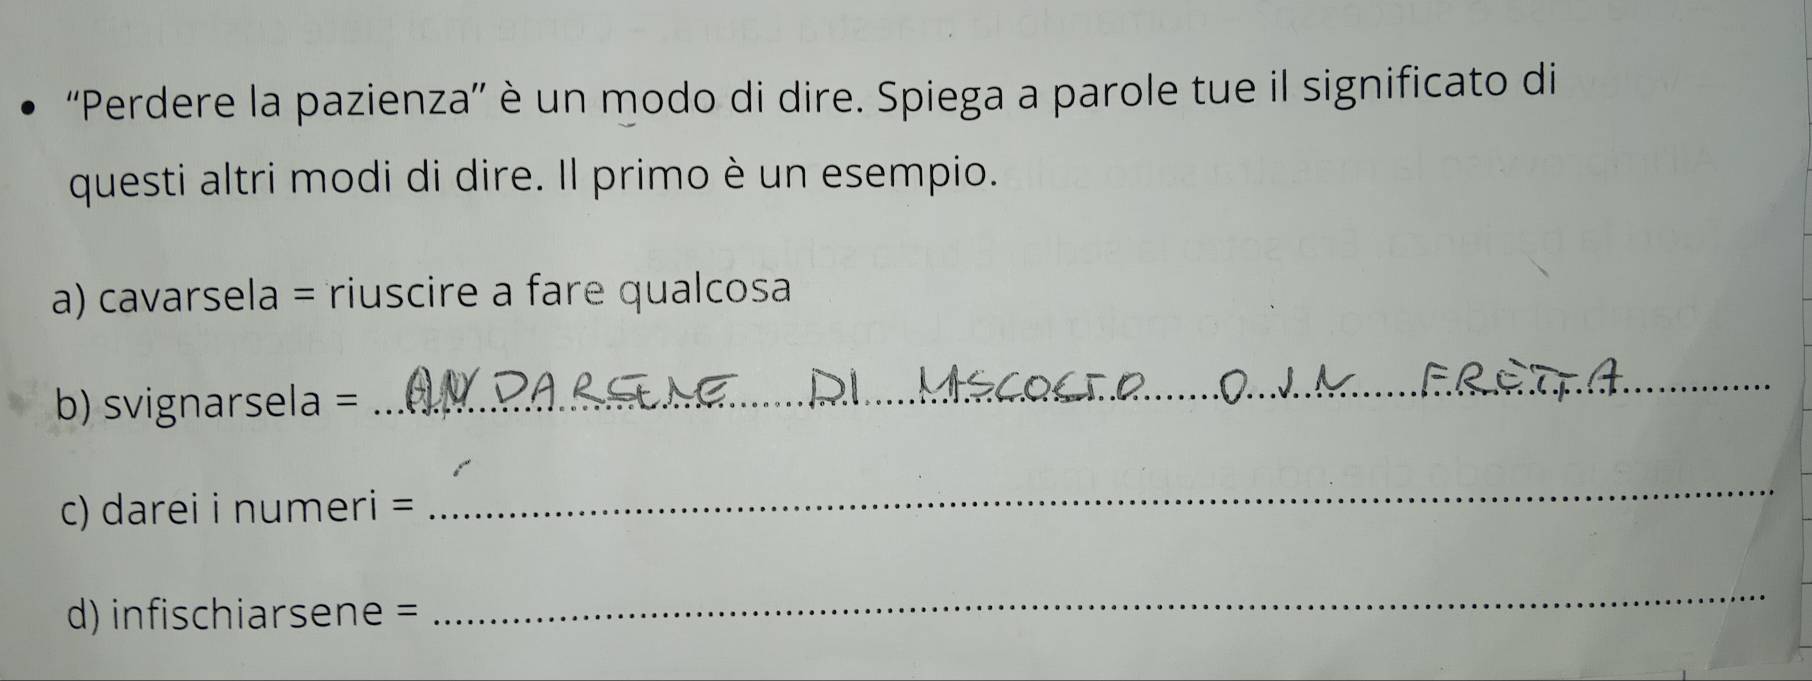 • "Perdere la pazienza" è un modo di dire. Spiega a parole tue il significato di
questi altri modi di dire. Il primo è un esempio.
a) cavarsela = riuscire a fare qualcosa
b) svignarsela = ANDARSENE DI NASCOSTO O IN FRETTA
c) darei i numeri =
d) infischiarsene =